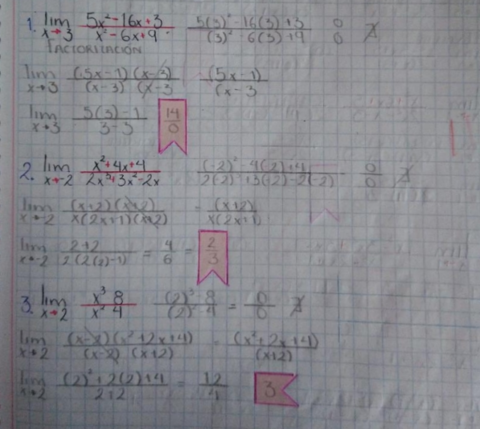 1. lim x→3 5x²-16x+3 / x²-6x+9 5(3)²-16(3)+3 / (3)²-6(3)+9 0/0
FACTORIZACIÓN
lim x→3 (5x-1)(x-3) / (x-3)(x-3 (5x-1) / (x-3
lim x→3 5(3)-1 / 3-3 14/0
2. lim x→-2 x²+4x+4 / 2x³+3x²-2x (-2)²-4(2)+4 / 2(-2) +3(2)-2(-2) 0/0
lim x→-2 (x+2)(x+2) / x(2x+1)(x+2) = (x+2) / x(2x+1)
lim x→-2 2+2 / 2(2(2)-1) = 4/6 = 2/3
3. lim x→2 x³ 8 / x² 4 (2)³ 8 / (2)² 4 = 0/0
lim x→2 (x-2)(x²+2x+4) / (x-2)(x+2) = (x²+2x+4) / (x+2)
lim x→2 (2)²+2(2)+4 / 2+2 = 12/4 3